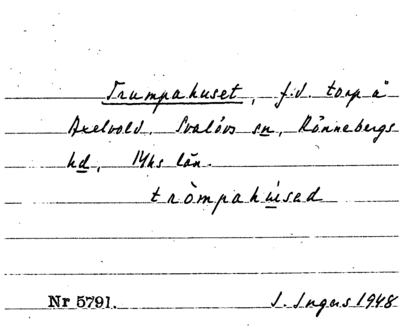 Trumpahuset, f.d. torp å
Axelvold, Svalövs sn, Rönnebergs
hd, Mhs län.
tròmpahùsed
Nr 5791.
I. Ingers 1948